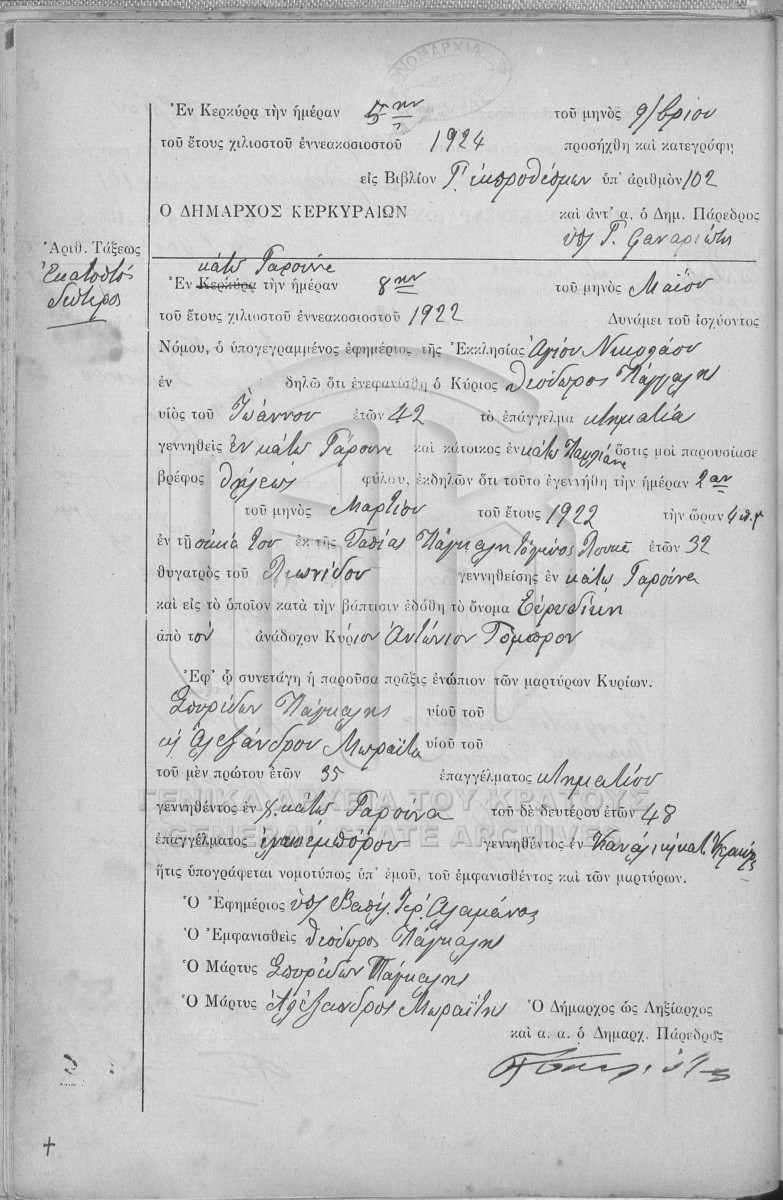 ΝΟΜΑΡΧΙΑ
Ἐν Κερκύρᾳ τὴν ἡμέραν 5ην τοῦ μηνὸς 9/βρίου
τοῦ ἔτους χιλιοστοῦ ἐννεακοσιοστοῦ 1924 προσήχθη καὶ κατεγράφη
εἰς Βιβλίον Γ. ἐκπροθέσμων ὑπ' ἀριθμὸν 102
Ο ΔΗΜΑΡΧΟΣ ΚΕΡΚΥΡΑΙΩΝ καὶ ἀντ' α. ὁ Δημ. Πάρεδρος
Ἀριθ. Τάξεως
Ἑκατοστός
δεύτερος
κάτω Γαρούνα
Ἐν Κερκύρᾳ τὴν ἡμέραν 8ην τοῦ μηνὸς Μαΐου
τοῦ ἔτους χιλιοστοῦ ἐννεακοσιοστοῦ 1922 Δυνάμει τοῦ ἰσχύοντος
Νόμου, ὁ ὑπογεγραμμένος ἐφημέριος τῆς Ἐκκλησίας Ἁγίου Νικολάου
ἐν δηλῶ ὅτι ἐνεφανίσθη ὁ Κύριος Θεόδωρος Πάγκαλης
υἱὸς τοῦ Ἰωάννου ἐτῶν 42 τὸ ἐπάγγελμα κτηματία
γεννηθεὶς ἐν κάτω Γαρούνα καὶ κάτοικος ἐν κάτω ὅστις μοὶ παρουσίασε
βρέφος θήλεως φύλου, ἐκδηλῶν ὅτι τοῦτο ἐγεννήθη τὴν ἡμέραν 2αν
τοῦ μηνὸς Μαρτίου τοῦ ἔτους 1922 τὴν ὥραν 4
ἐν τῇ οἰκίᾳ του ἐκ τῆς Πάγκαλη ἐτῶν 32
θυγατρὸς τοῦ Λεωνίδου γεννηθείσης ἐν κάτω Γαρούνα
καὶ εἰς τὸ ὁποῖον κατὰ τὴν βάπτισιν ἐδόθη τὸ ὄνομα Εὐρυδίκη
ἀπὸ τὸν ἀνάδοχον Κύριον Ἀντώνιον
Ἐφ' ᾧ συνετάγη ἡ παροῦσα πρᾶξις ἐνώπιον τῶν μαρτύρων Κυρίων.
Σπυρίδων Πάγκαλης υἱοῦ τοῦ
κ Ἀλεξάνδρου Μωραΐτη υἱοῦ τοῦ
τοῦ μὲν πρώτου ἐτῶν 35 ἐπαγγέλματος κτηματίου
ΓΕΝΙΚΑ ΑΡΧΕΙΑ ΤΟΥ ΚΡΑΤΟΥΣ
γεννηθέντος ἐν κάτω Γαρούνα τοῦ δὲ δευτέρου ἐτῶν 48
GENERAL STATE ARCHIVES
ἐπαγγέλματος γεννηθέντος ἐν
ἥτις ὑπογράφεται νομοτύπως ὑπ' ἐμοῦ, τοῦ ἐμφανισθέντος καὶ τῶν μαρτύρων.
Ὁ Ἐφημέριος Ἀλαμάνος
Ὁ Ἐμφανισθεὶς Θεόδωρος Πάγκαλης
Ὁ Μάρτυς Σπυρίδων Πάγκαλης
Ὁ Μάρτυς Ἀλέξανδρος Μωραΐτης Ὁ Δήμαρχος ὡς Ληξίαρχος
καὶ α. α. ὁ Δημαρχ. Πάρεδρος